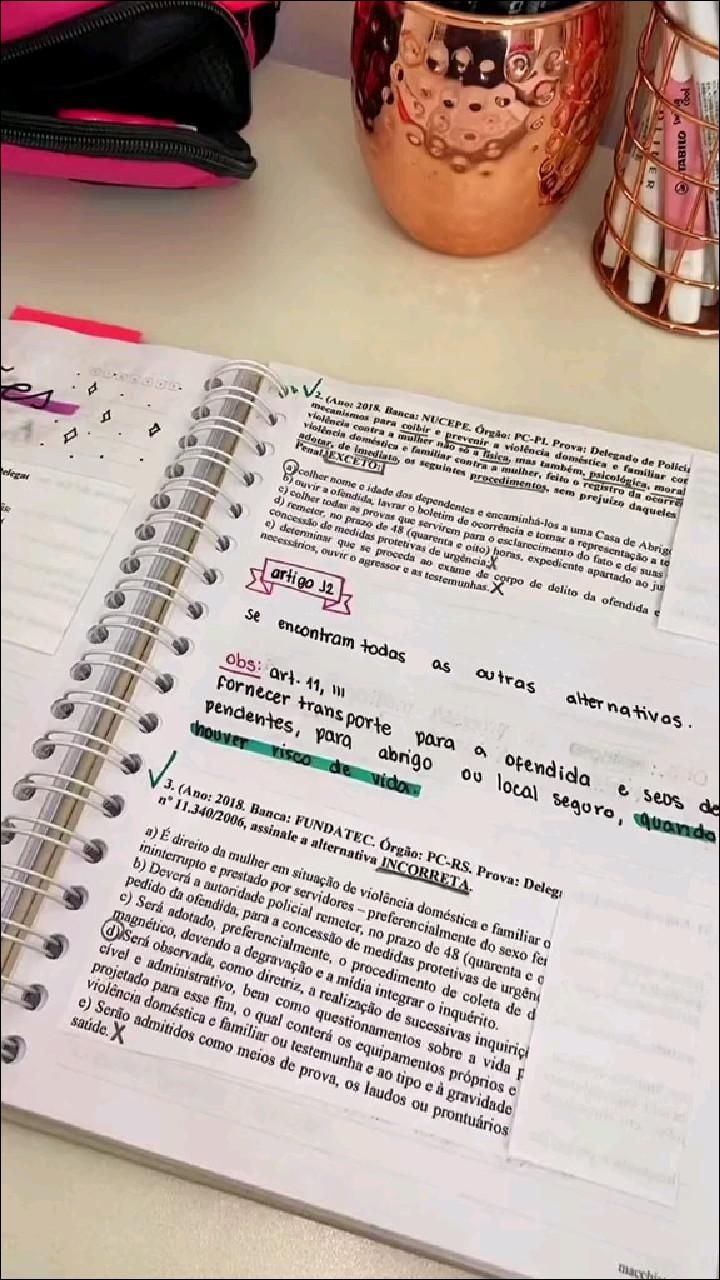 es
TABILO
cool
2. (Ano: 2018. Banca: NUCEPE. Órgão: PC-PI. Prova: Delegado de Polícia
mecanismos para coibir e prevenir a violência doméstica e familiar con
violência contra a mulher não só a física, mas também, psicológica, moral
violência doméstica e familiar contra a mulher, feito o registro da ocorrê
adotar, de imediato, os seguintes procedimentos, sem prejuízo daqueles
Penal, EXCETO:
a) colher nome e idade dos dependentes e encaminhá-los a uma Casa de Abrigo
b) ouvir a ofendida, lavrar o boletim de ocorrência e tomar a representação a te
c) colher todas as provas que servirem para o esclarecimento do fato e de suas
d) remeter, no prazo de 48 (quarenta e oito) horas, expediente apartado ao ju
concessão de medidas protetivas de urgência;
e) determinar que se proceda ao exame de corpo de delito da ofendida e
necessários, ouvir o agressor e as testemunhas.
artigo 12
se encontram todas as outras alternativas.
obs: art. 11, III
fornecer transporte para a ofendida e seus de
pendentes, para abrigo ou local seguro, quando
houver risco de vida.
3. (Ano: 2018. Banca: FUNDATEC. Órgão: PC-RS. Prova: Deleg
nº 11.340/2006, assinale a alternativa INCORRETA.
a) É direito da mulher em situação de violência doméstica e familiar o
ininterrupto e prestado por servidores – preferencialmente do sexo fe
b) Deverá a autoridade policial remeter, no prazo de 48 (quarenta e o
pedido da ofendida, para a concessão de medidas protetivas de urgên
c) Será adotado, preferencialmente, o procedimento de coleta de d
magnético, devendo a degravação e a mídia integrar o inquérito.
d) Será observada, como diretriz, a realização de sucessivas inquiriç
cível e administrativo, bem como questionamentos sobre a vida p
projetado para esse fim, o qual conterá os equipamentos próprios e
violência doméstica e familiar ou testemunha e ao tipo e à gravidade
e) Serão admitidos como meios de prova, os laudos ou prontuários
saúde.